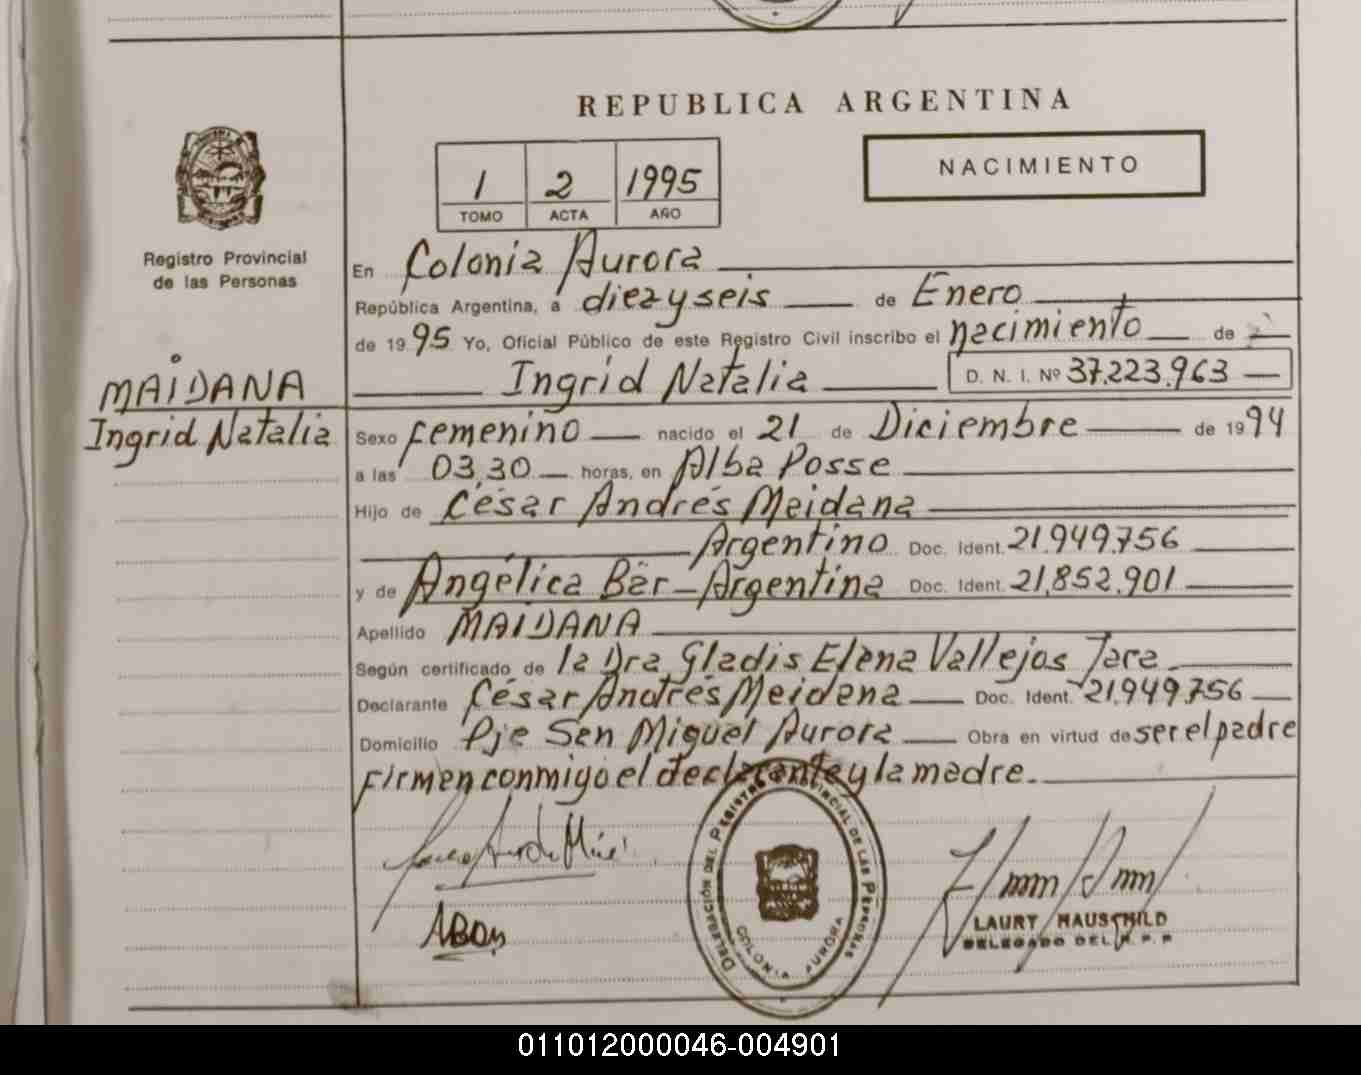 REPUBLICA ARGENTINA
NACIMIENTO
1 2 1995
TOMO ACTA AÑO
Registro Provincial
de las Personas
En Colonia Aurora
República Argentina, a diez y seis de Enero
de 1995 Yo, Oficial Público de este Registro Civil inscribo el nacimiento de
Ingrid Natalia D. N. I. Nº 37.223.963
MAIDANA
Ingrid Natalia
Sexo femenino nacido el 21 de Diciembre de 1994
a las 03,30 horas, en Alba Posse
Hijo de César Andrés Meidana
Argentino Doc. Ident. 21.949.756
y de Angélica Bär - Argentina Doc. Ident. 21.852.901
Apellido MAIDANA
Según certificado de la Dra Gladis Elena Vallejos Jara
Declarante César Andrés Meidana Doc. Ident. 21.949.756
Domicilio Pje San Miguel Aurora Obra en virtud de ser el padre
firman conmigo el declarante y la madre.
DELEGACIÓN DEL REGISTRO PROVINCIAL DE LAS PERSONAS
COLONIA AURORA
LAURY HAUSCHILD
DELEGADO DEL R. P. P
011012000046-004901